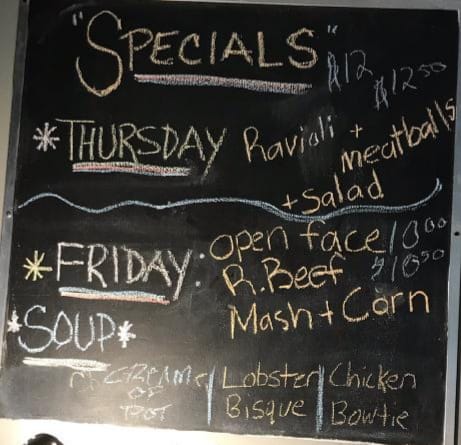 "SPECIALS"
$12 $12.50
*THURSDAY Ravioli +
meatballs
+ Salad
*FRIDAY: open face 10.00
R. Beef $10.50
Mash + Corn
*SOUP*
Lobster Chicken
OF Bisque Bowtie